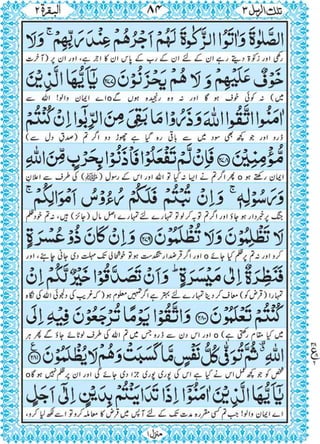 تلك الرسل ٣ ٨٤ البقرة ٢
الصَّلٰوةَ وَاٰتَوُا الزَّكٰوةَ لَهُمْ اَجْرُهُمْ عِنْدَ رَبِّهِمْ ۚ وَلَا
رکھی اور زکوٰۃ دیتے رہے ان کے لئے ان کے رب کے پاس ان کا اجر ہے، اور ان پر (آخرت
خَوْفٌ عَلَيْهِمْ وَلَا هُمْ يَحْزَنُوْنَ ﴿۲۷۷﴾ يٰۤاَيُّهَا الَّذِيْنَ
میں) نہ کوئی خوف ہو گا اور نہ وہ رنجیدہ ہوں گے o اے ایمان والو! اللہ سے
اٰمَنُوا اتَّقُوا اللّٰهَ وَذَرُوْا مَا بَقِيَ مِنَ الرِّبٰۤوا اِنْ كُنْتُمْ
ڈرو اور جو کچھ بھی سود میں سے باقی رہ گیا ہے چھوڑ دو اگر تم (صدق دل سے)
مُّؤْمِنِيْنَ ﴿۲۷۸﴾ فَاِنْ لَّمْ تَفْعَلُوْا فَاْذَنُوْا بِحَرْبٍ مِّنَ اللّٰهِ
ایمان رکھتے ہو o پھر اگر تم نے ایسا نہ کیا تو اللہ اور اس کے رسول (ﷺ) کی طرف سے اعلان
وَرَسُوْلِهٖ ۚ وَاِنْ تُبْتُمْ فَلَكُمْ رُءُوْسُ اَمْوَالِكُمْ ۚ
جنگ پر خبردار ہو جاؤ اور اگر تم توبہ کر لو تو تمہارے لئے تمہارے اصل مال (جائز) ہیں، نہ تم خود ظلم
لَا تَظْلِمُوْنَ وَلَا تُظْلَمُوْنَ ﴿۲۷۹﴾ وَاِنْ كَانَ ذُوْ عُسْرَةٍ
کرو اور نہ تم پر ظلم کیا جائے o اور اگر قرضدار تنگدست ہو تو خوشحالی تک مہلت دی جانی چاہئے، اور
فَنَظِرَةٌ اِلٰى مَيْسَرَةٍ ؕ وَاَنْ تَصَدَّقُوْا خَيْرٌ لَّكُمْ اِنْ
تمہارا (قرض کو) معاف کر دینا تمہارے لئے بہتر ہے اگر تمہیں معلوم ہو (کہ غریب کی دلجوئی اللہ کی نگاہ
كُنْتُمْ تَعْلَمُوْنَ ﴿۲۸۰﴾ وَاتَّقُوْا يَوْمًا تُرْجَعُوْنَ فِيْهِ اِلَى
میں کیا مقام رکھتی ہے) o اور اس دن سے ڈرو جس میں تم اللہ کی طرف لوٹائے جاؤ گے، پھر ہر
اللّٰهِ ۗ ثُمَّ تُوَفّٰى كُلُّ نَفْسٍ مَّا كَسَبَتْ وَهُمْ لَا يُظْلَمُوْنَ ﴿۲۸۱﴾
شخص کو جو کچھ عمل اس نے کیا ہے اس کی پوری پوری جزا دی جائے گی اور ان پر ظلم نہیں ہو گا o
يٰۤاَيُّهَا الَّذِيْنَ اٰمَنُوْۤا اِذَا تَدَايَنْتُمْ بِدَيْنٍ اِلٰۤى اَجَلٍ
اے ایمان والو! جب تم کسی مقررہ مدت تک کے لئے آپس میں قرض کا معاملہ کرو تو اسے لکھ لیا کرو،
منزل ١